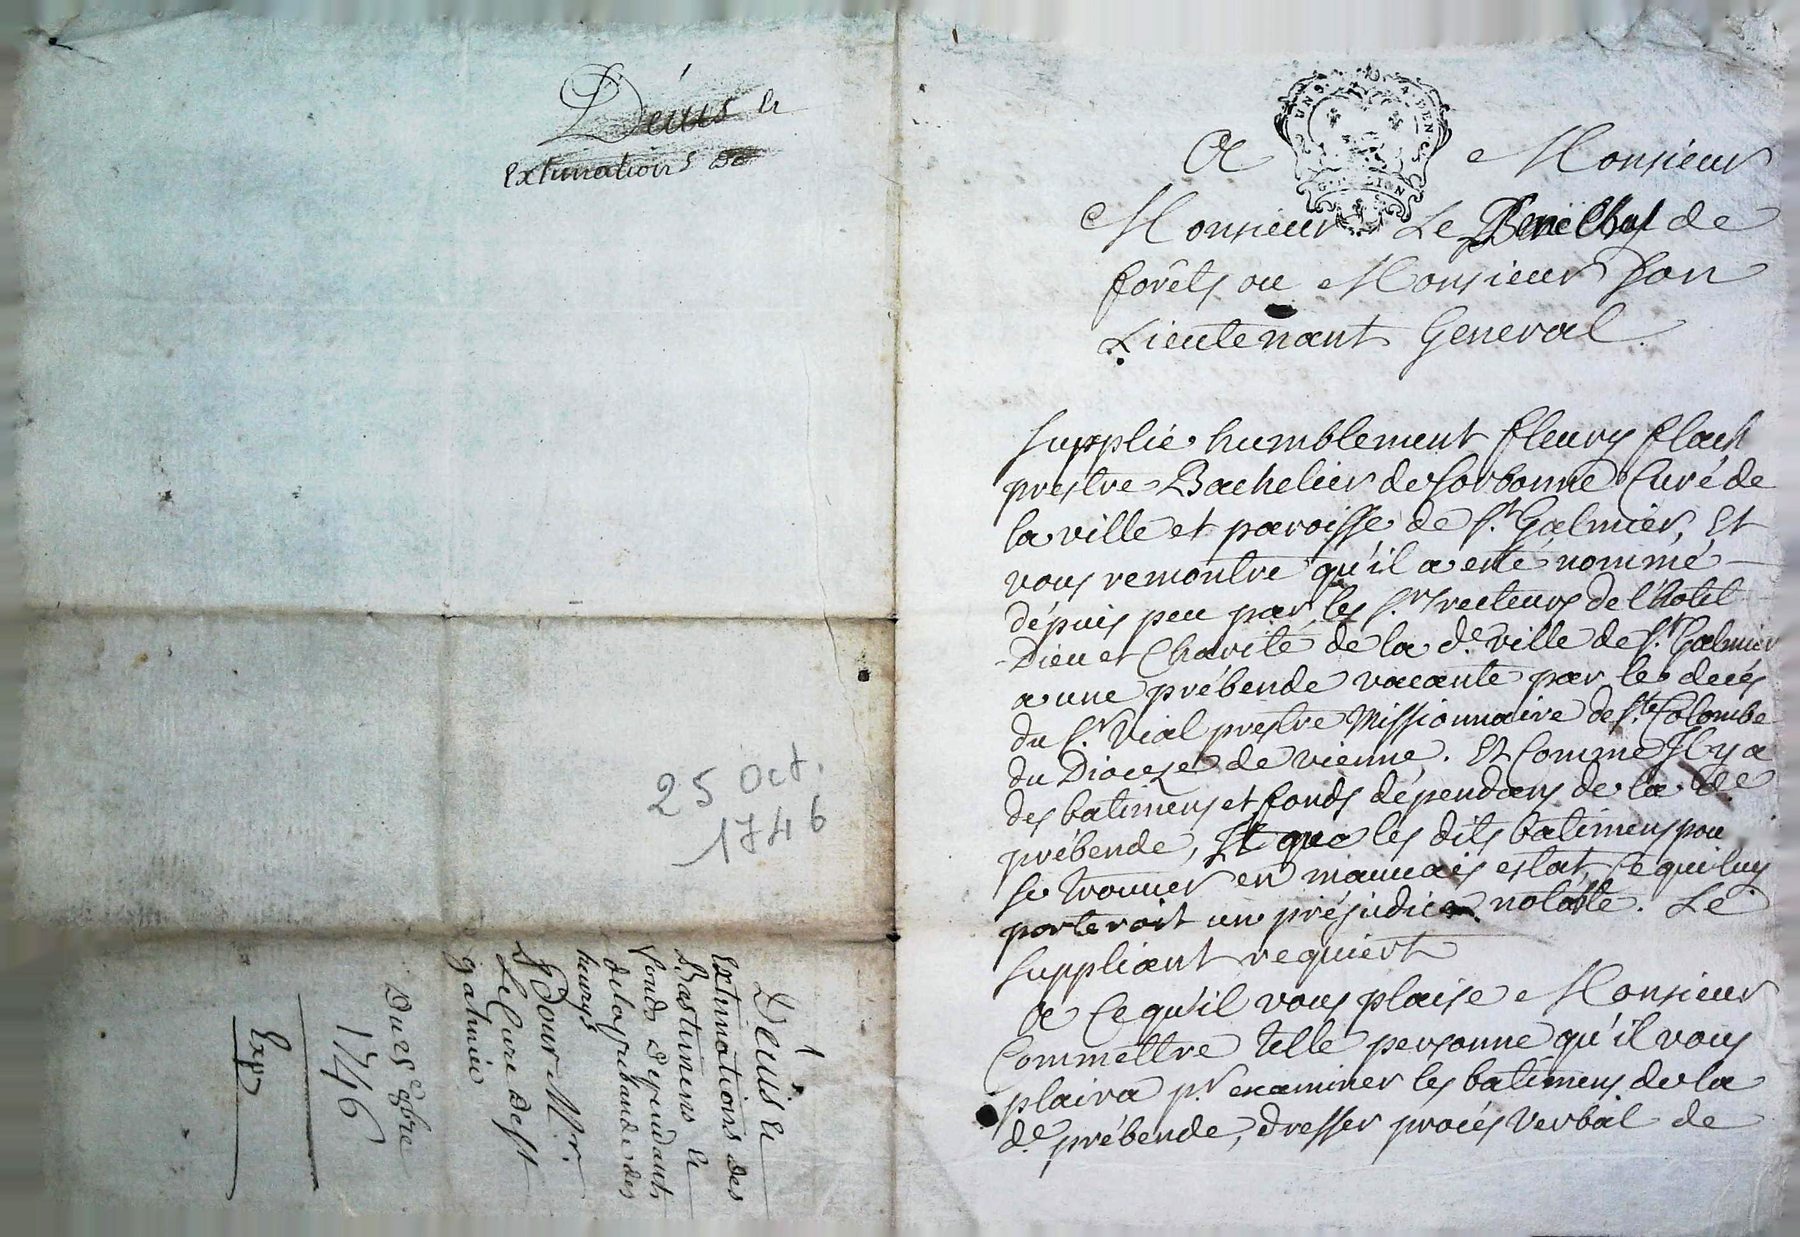 Devis et
Extimations de
25 Oct.
1746
1
Devis et
Extimations des
Bastimens et
fonds Dependants
de la prebande des
henrys
Pour Mr.
Le Curé De St
galmier
Du 25e 8bre
1746
Expp
UN S. 4 DEN.
G. LION
A Monsieur
Monsieur Le de
forêts ou Monsieur son
Lieutenant General.
supplie humblement fleury flach
prestre Bachelier de sorbonne Curé de
la ville et paroisse de St. Galmier, Et
vous remontre qu'il a esté nommé
dépuis peu par les Srs. recteurs de l'hotel
Dieu et Charité de la de. ville de St. Galmier
a une prébende vacante par le decés
du Sr. Vial prestre Missionnaire de Ste. Colombe
du Dioceze de vienne. Et Comme Il y a
des batimens et fonds dépendans de la de.
prébende, Et que les dits batimens
se trouver en mauvais estat, Ce qui luy
porteroit un préjudice notable. Le
suppliant requiert
A Ce qu'il vous plaise Monsieur
Commettre telle personne qu'il vous
plaira pr. examiner les batimens de la
de. prébende, dresser procés verbal de